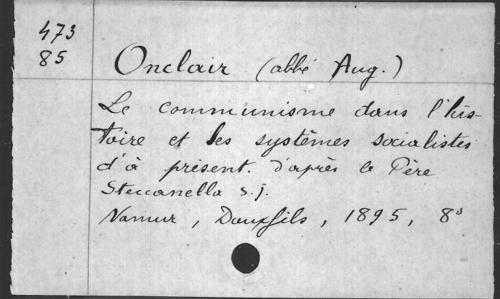 473
85
Onclair (abbé Aug.)
Le communisme dans l'his-
toire et les systèmes socialistes
d'à présent. d'après le Père
Steccanella S.j.
Namur, Douxfils, 1895, 8°